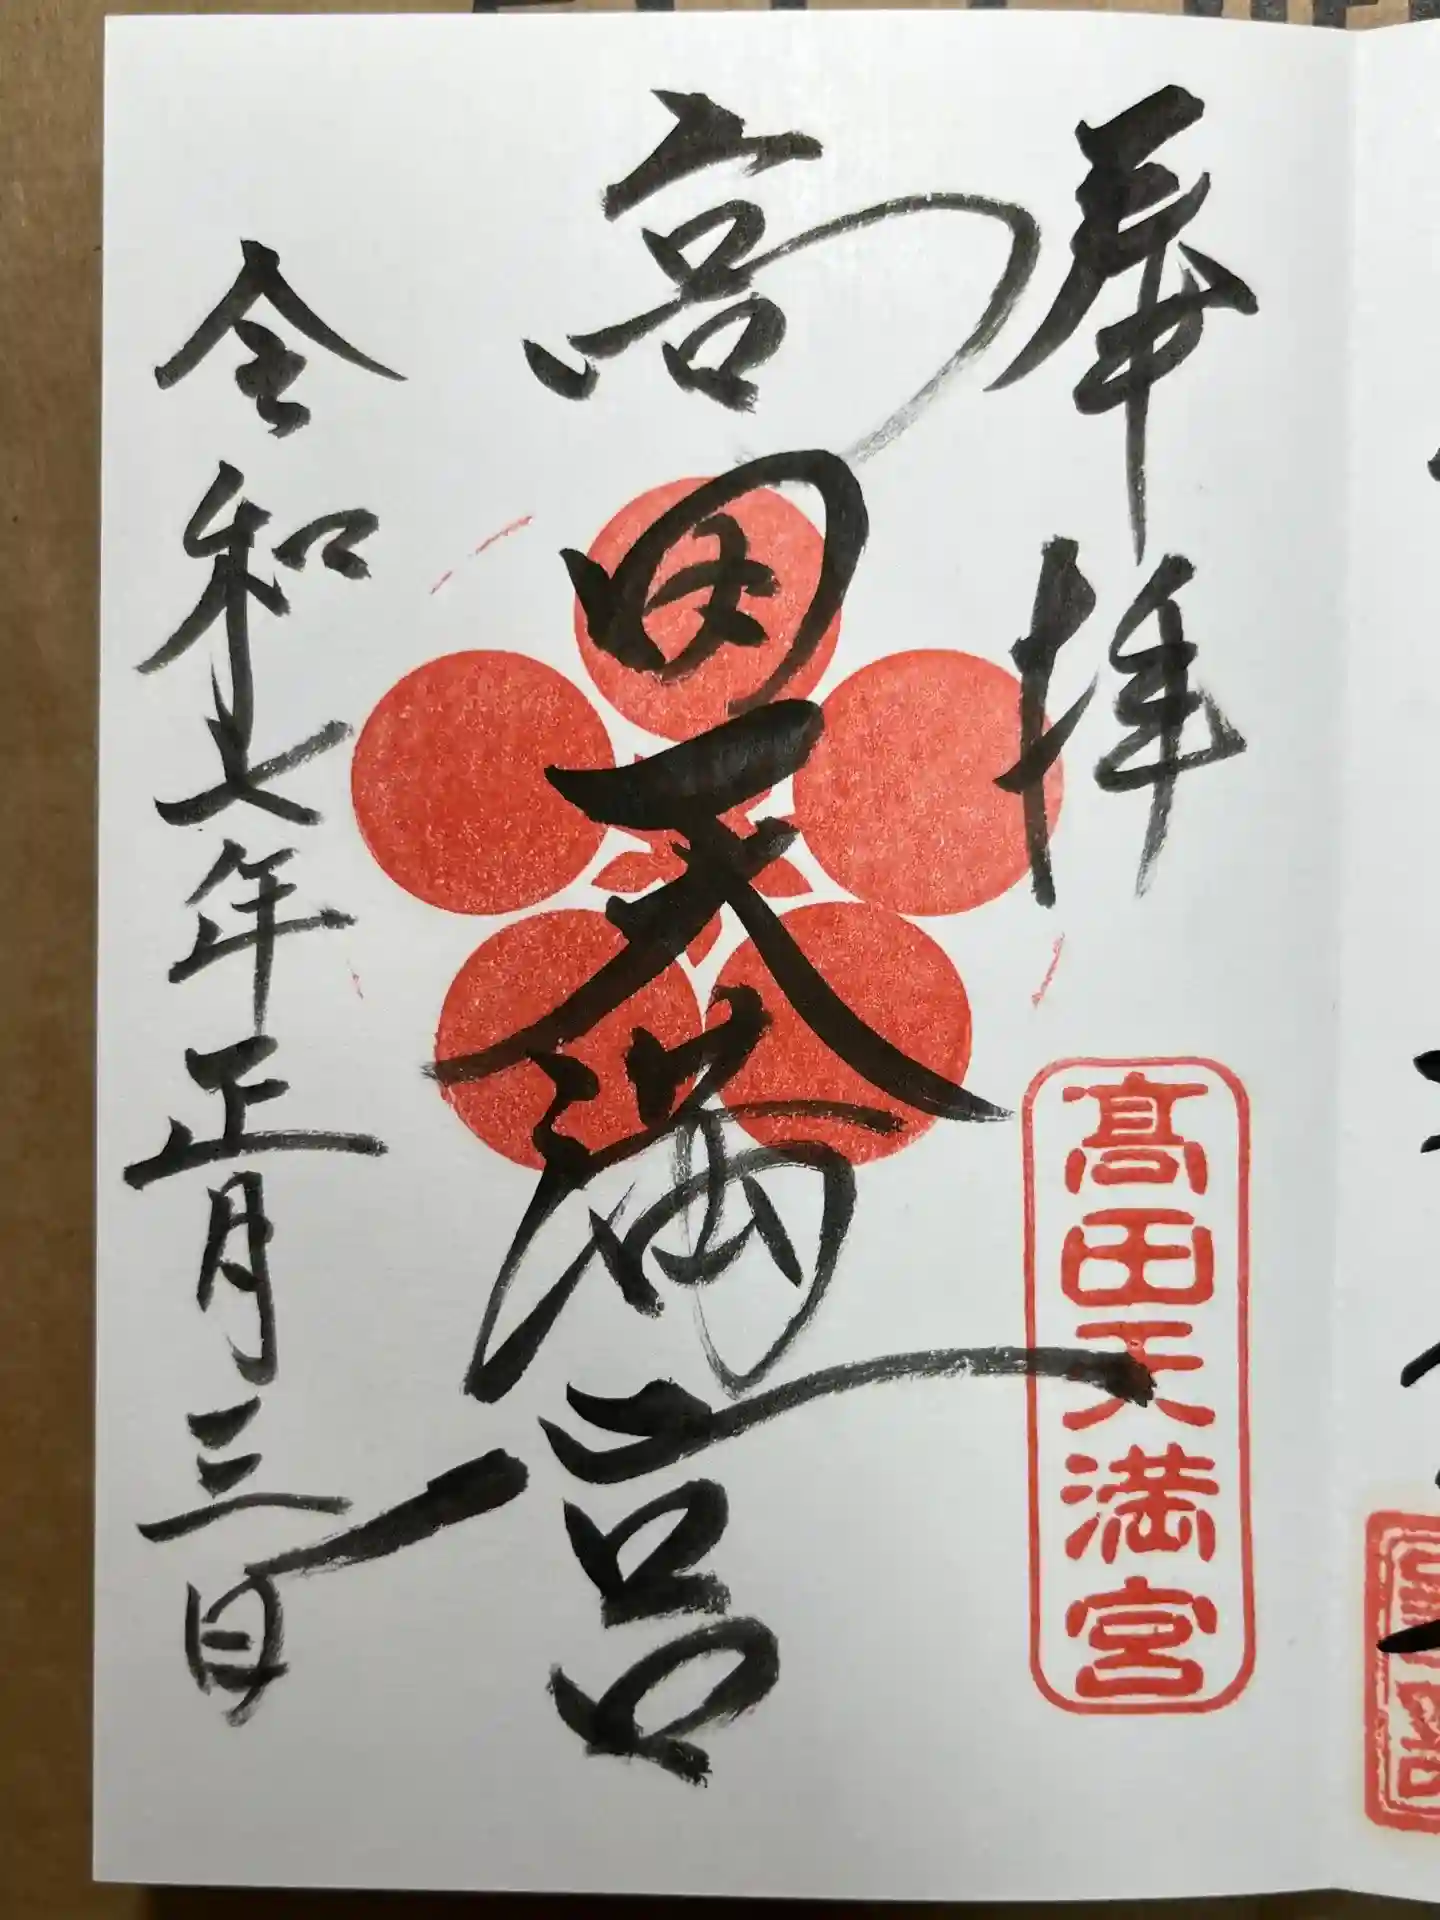 奉拝
髙田天満宮
高田天満宮
令和七年正月三日